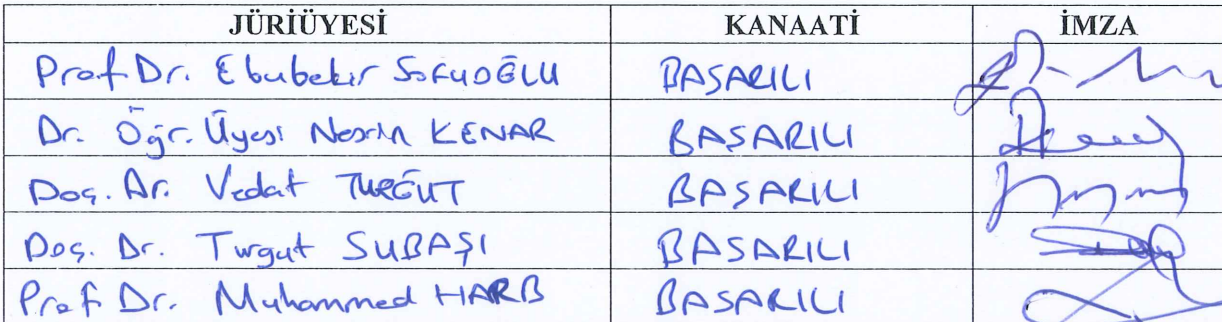 JÜRİÜYESİ KANAATİ İMZA
Prof Dr. Ebubekir SOFUOĞLU BAŞARILI
Dr. Öğr. Üyesi Nesrin KENAR BAŞARILI
Doç. Dr. Vedat TURĞUT BAŞARILI
Doç. Dr. Turgut SUBAŞI BAŞARILI
Prof Dr. Muhammed HARB BAŞARILI